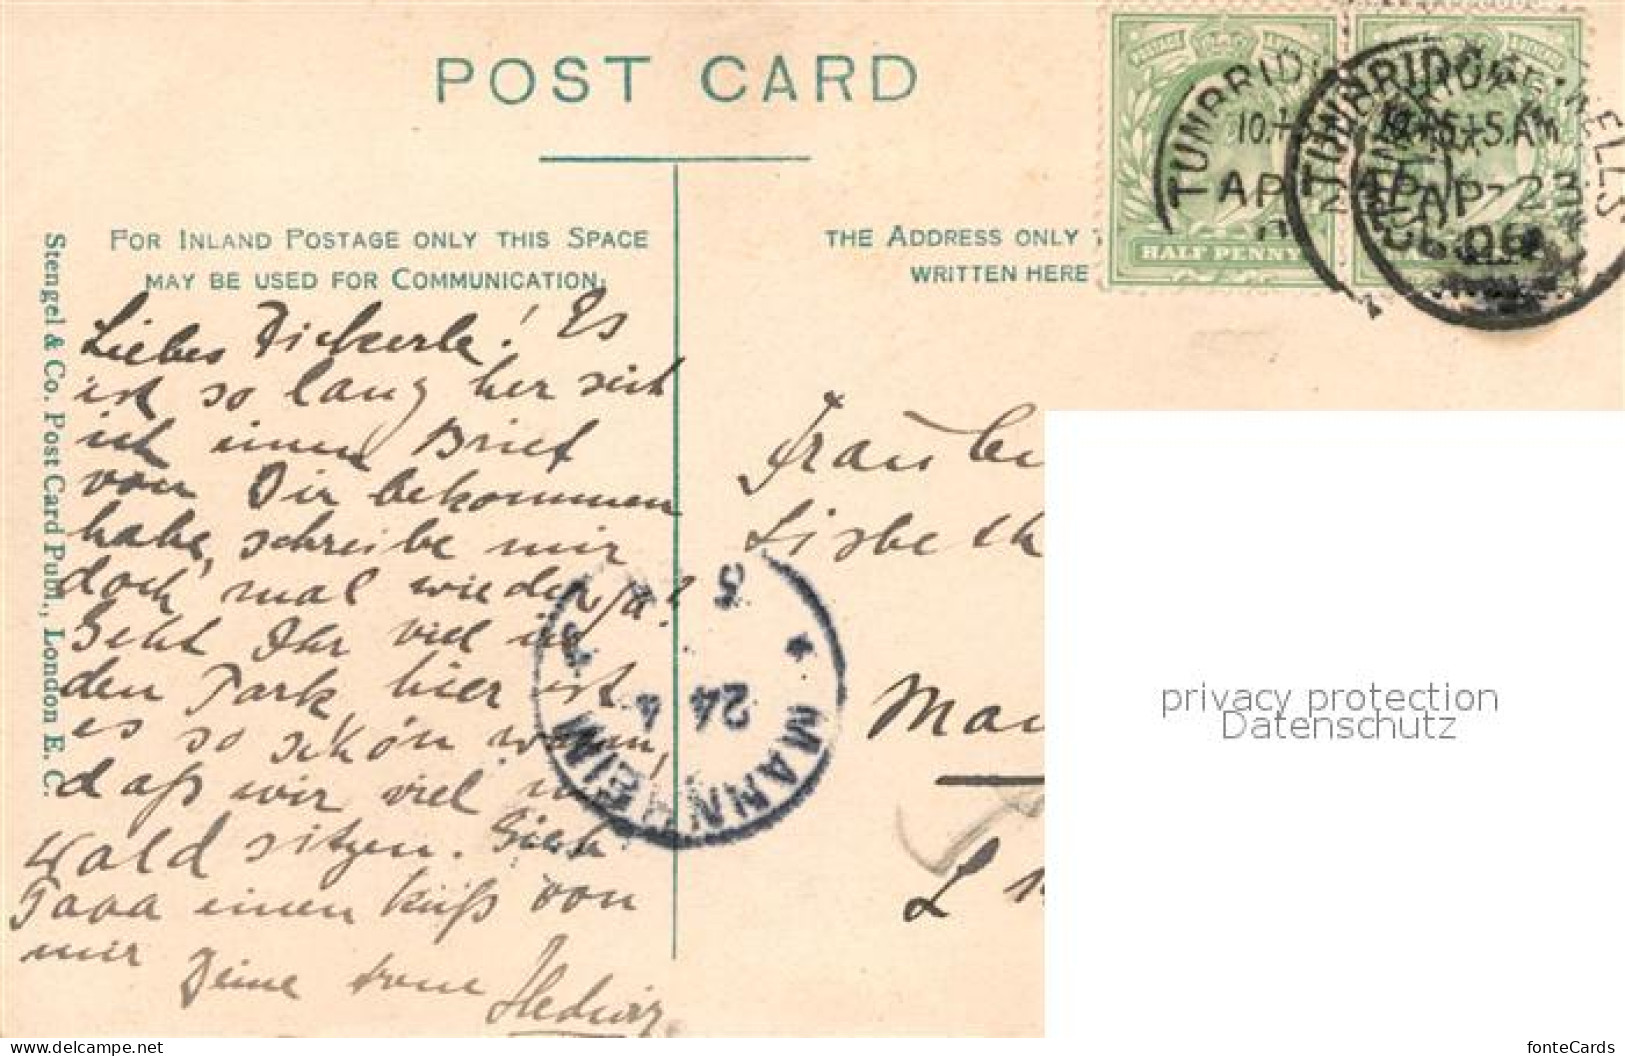 POST CARD
FOR INLAND POSTAGE ONLY THIS SPACE
MAY BE USED FOR COMMUNICATION.
THE ADDRESS ONLY
WRITTEN HERE
HALF PENNY
TUNBRIDGE WELLS
10.15 AM
AP 23
06
Stengel & Co. Post Card Publ., London E. C.
Liebes Dickerle! Es
ist so lang her seit
ich einen Brief
von Dir bekommen
habe, schreibe mir
doch mal wieder, ja?
Geht Ihr viel in
den Park, hier ist
es so schön warm,
daß wir viel im
Wald sitzen. Gieb
Papa einen Kuß von
mir Deine
Hedwig
Frau
Lisbeth
Man
L
MANNHEIM
24 4
privacy protection
Datenschutz
www.delcampe.net
fonteCards